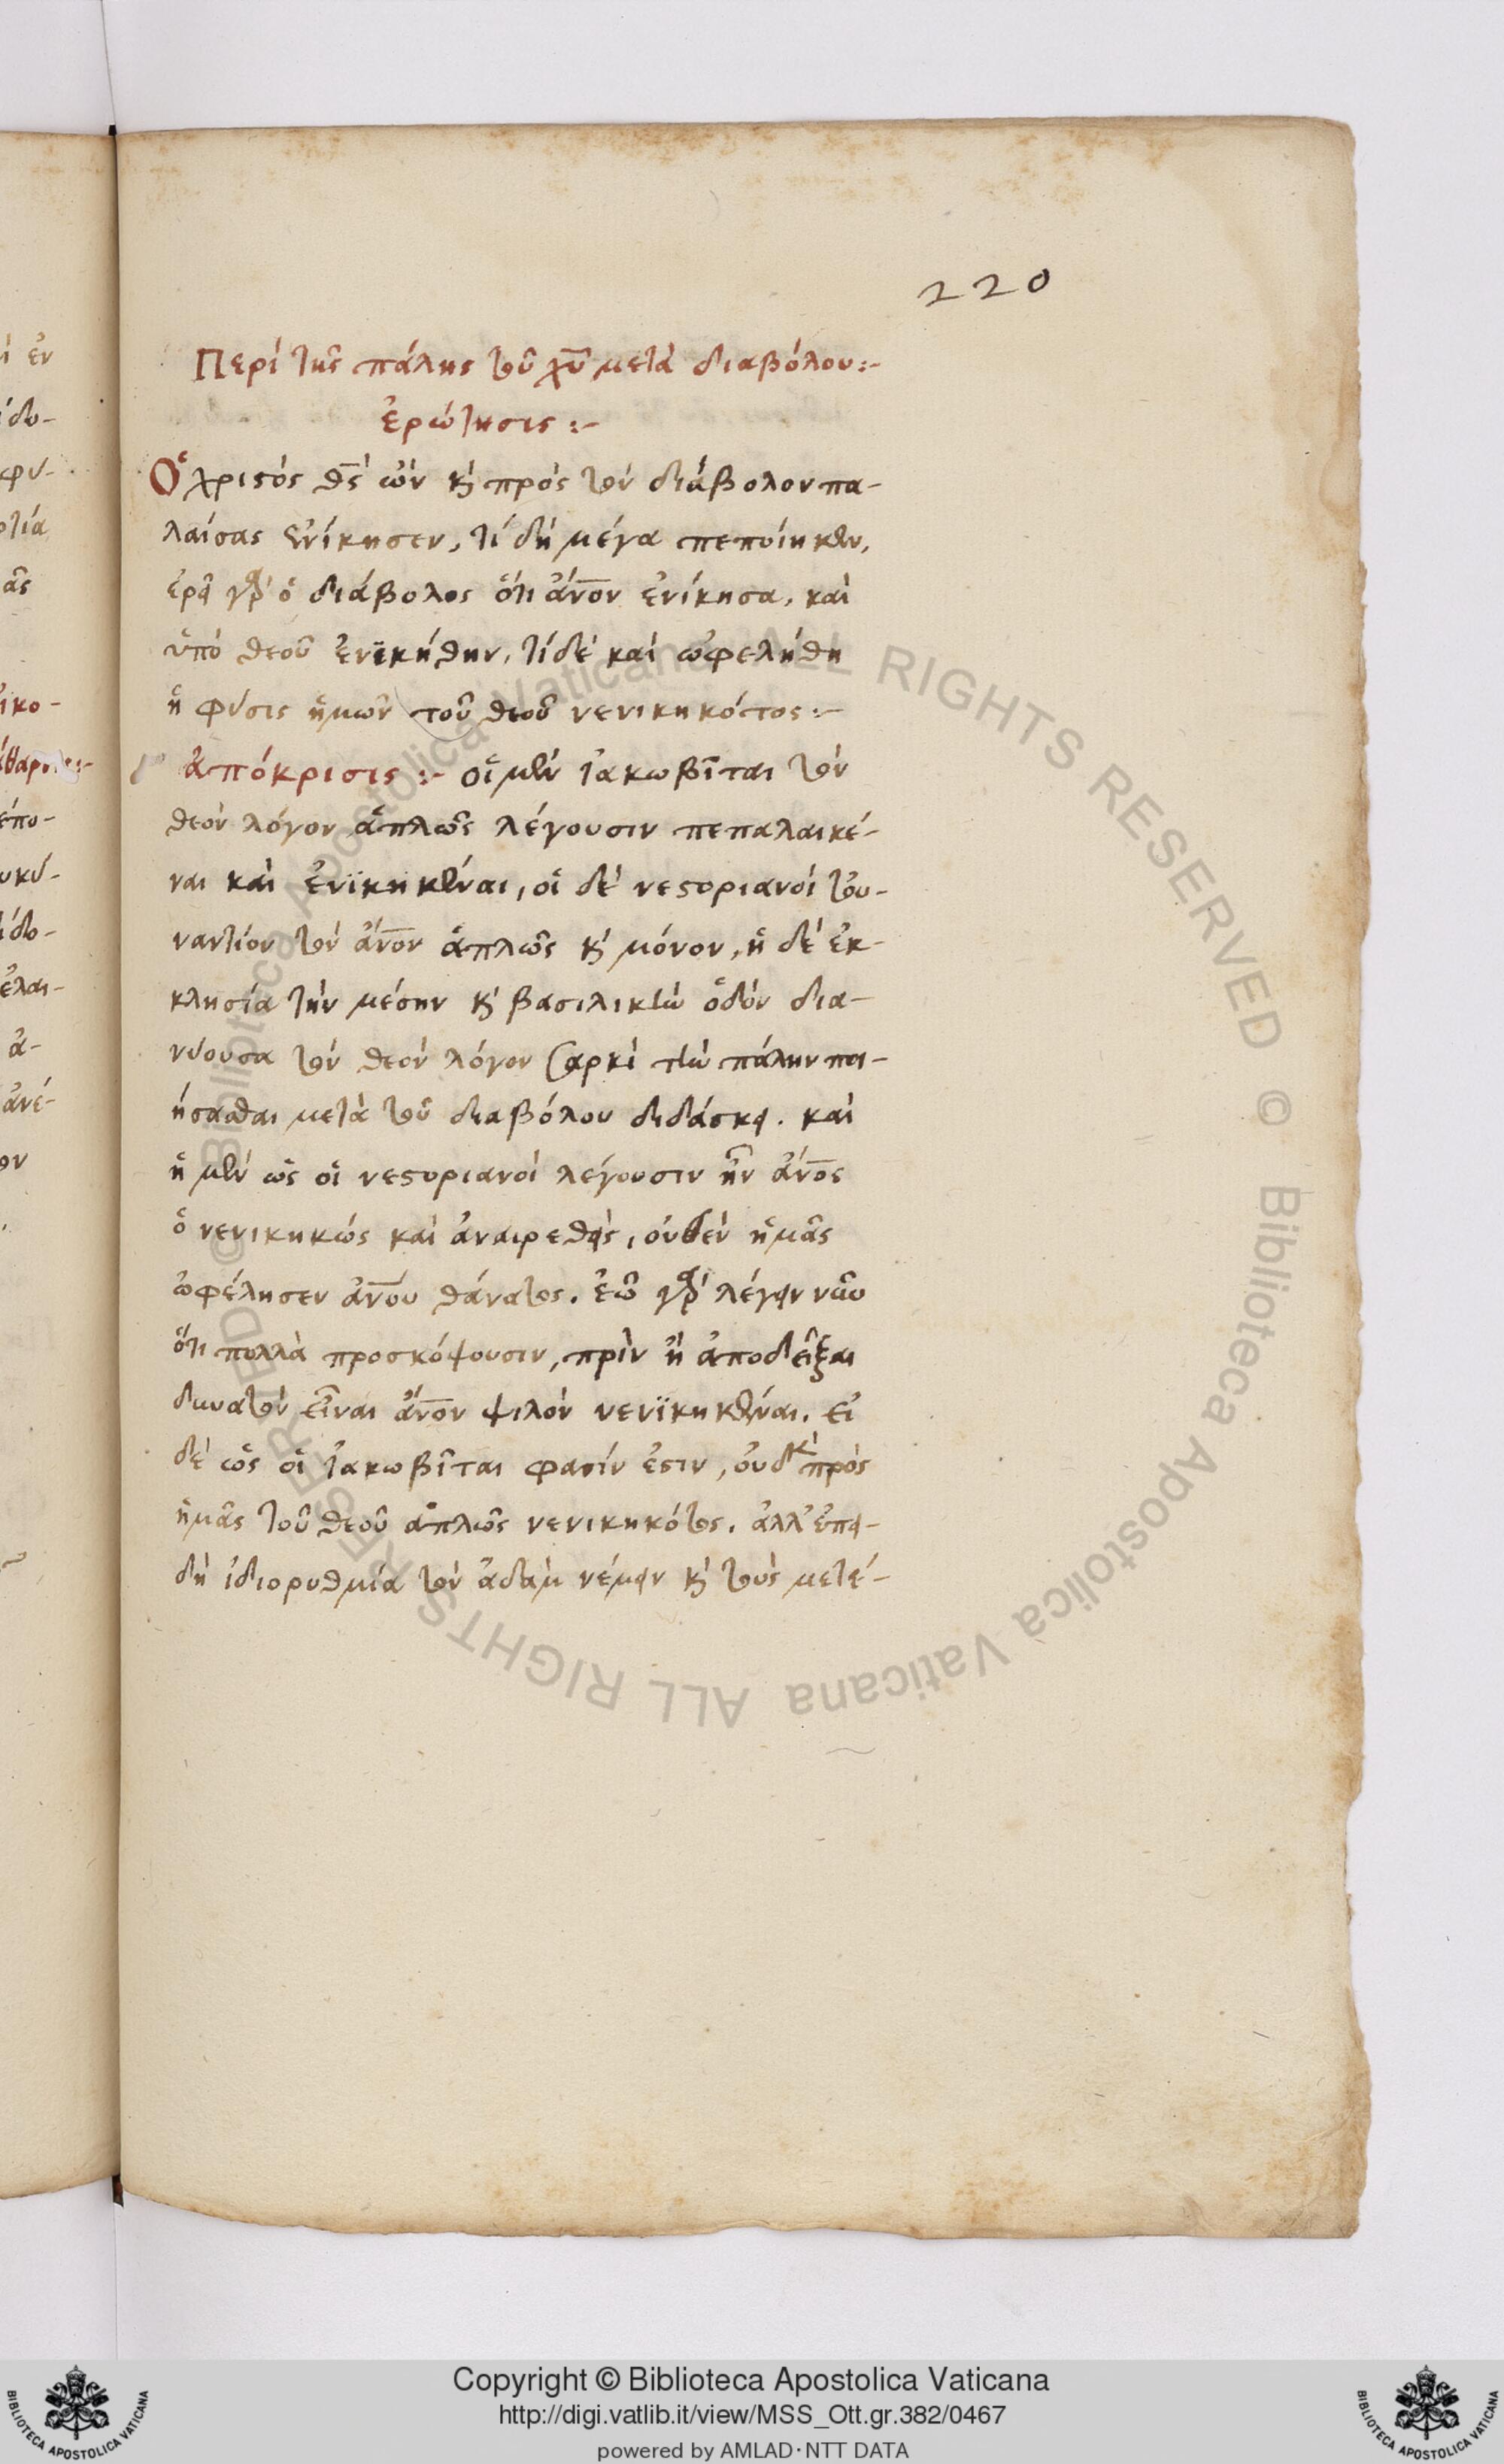 220
Περὶ τῆς πάλης τοῦ χυ μετὰ διαβόλου:-
ἐρώτησις:-
Ὁ χριστός θς ὢν κὶ πρὸς τὸν διάβολον πα-
λαίσας ἐνίκησεν, τί δὴ μέγα πεποίηκεν,
ἐρεῖ γὰρ ὁ διάβολος ὅτι ἄνον ἐνίκησα, καὶ
ὑπὸ θεοῦ ἐνϊκήθην, τί δὲ καὶ ὠφελήθη
ἡ φύσις ἡμῶν τοῦ θεοῦ νενικηκότος:-
ἀπόκρισις:- οἱ μὲν ἰακωβῖται τὸν
θεὸν λόγον ἁπλῶς λέγουσιν πεπαλαικέ-
ναι καὶ ἐνϊκηκέναι, οἱ δὲ νεστοριανοὶ τοὐ-
ναντίον τὸν ἄνον ἁπλῶς κὶ μόνον, ἡ δὲ ἐκ-
κλησία τὴν μέσην κὶ βασιλικὴν ὁδὸν δια-
νύουσα τὸν θεὸν λόγον σαρκὶ τὴν πάλην ποι-
ήσασθαι μετὰ τοῦ διαβόλου διδάσκει. καὶ
ἡ μὲν ὡς οἱ νεστοριανοὶ λέγουσιν ἦν ἄνος
ὁ νενικηκώς καὶ ἀναιρεθείς, οὐδὲν ἡμᾶς
ὠφέλησεν ἀνου θάνατος. ἐῶ γὰρ λέγειν νῦν
ὅτι πολλὰ προσκόψουσιν, πρὶν ἢ ἀποδεῖξαι
δυνατὸν εἶναι ἄνον ψιλὸν νενϊκηκέναι. εἰ
δὲ ὡς οἱ ἰακωβῖται φασίν ἐστιν, οὐδὲν πρὸς
ἡμᾶς τοῦ θεοῦ ἁπλῶς νενικηκότος. ἀλλ' ἐπει-
δὴ ἰδιορυθμία τὸν ἀδὰμ νέμειν κὶ τοὺς μετέ-
Copyright © Biblioteca Apostolica Vaticana
http://digi.vatlib.it/view/MSS_Ott.gr.382/0467
powered by AMLAD·NTT DATA